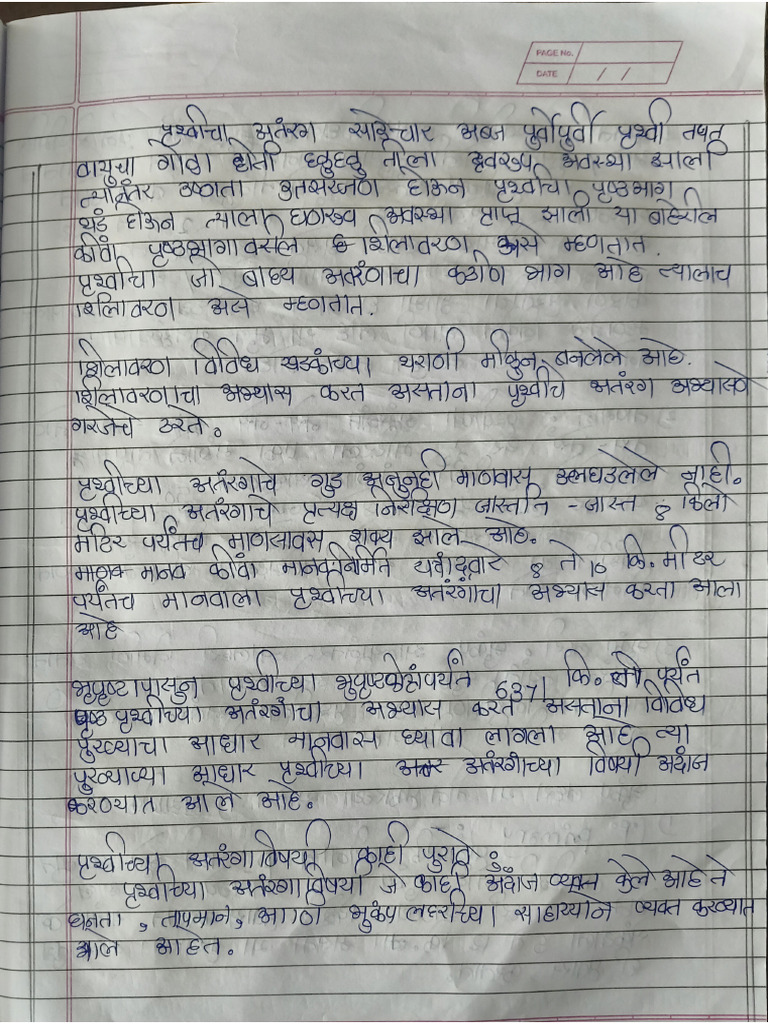 PAGE No.
DATE / /
पृथ्वीचा अतंरग साडेचार अब्ज पुर्वीपुर्वी पृथ्वी तप्त
वायुचा गोळा होती हळुहळु तीला द्रवरुप अवस्था झाली
त्यानंतर उष्णता उतसरजण होऊन पृथ्वीचा पृष्ठभाग
थंड होऊन त्याला घणरुव अवस्था प्राप्त झाली या बाहेरील
कींवा पृष्ठभागावरील शिलावरण असे म्हणतात.
पृथ्वीचा जो बाह्य अतंरंगाचा कठीण भाग आहे त्यालाच
शिलावरण असे म्हणतात.
शिलावरण विविध खडकांच्या थराणी मीळुन बनलेले आहे.
शिलावरणाचा अभ्यास करत असताना पृथ्वीचे अतंरग अभ्यासणे
गरजेचे ठरते.
पृथ्वीच्या अतंरगाचे गुढ अजुनही माणवास उलघडलेले नाही.
पृथ्वीच्या अतंरगाचे प्रत्यक्ष निरीक्षण जास्तीत - जास्त 8 किलो
मीटर पर्यंतच माणसावस शक्य झाले आहे.
मानव कींवा मानवनिर्मित यंत्राद्वारे 8 ते 10 कि. मीटर
पर्यंतच मानवाला पृथ्वीच्या अतंरंगाचा अभ्यास करता आला
आहे
भुपृष्टापासुन पृथ्वीच्या भुपृष्टकेंद्रापर्यंत 6371 कि. मी पर्यंत
पृथ्वीच्या अतंरगाचा अभ्यास करत असताना विविध
पुरव्याचा आधार मानवास घ्यावा लागला आहे त्या
पुरव्याच्या आधार पृथ्वीच्या अतंरगाच्या विषयी अदांज
करण्यात आले आहे.
पृथ्वीच्या अतंरगाविषयी काही पुरावे :
पृथ्वीच्या अतंरगाविषयी जे काही अदाँज व्यक्त केले आहे ते
घनता, तापमान, आणि भुकंप लहरीच्या साहाय्याने व्यक्त करण्यात
आल आहेत.